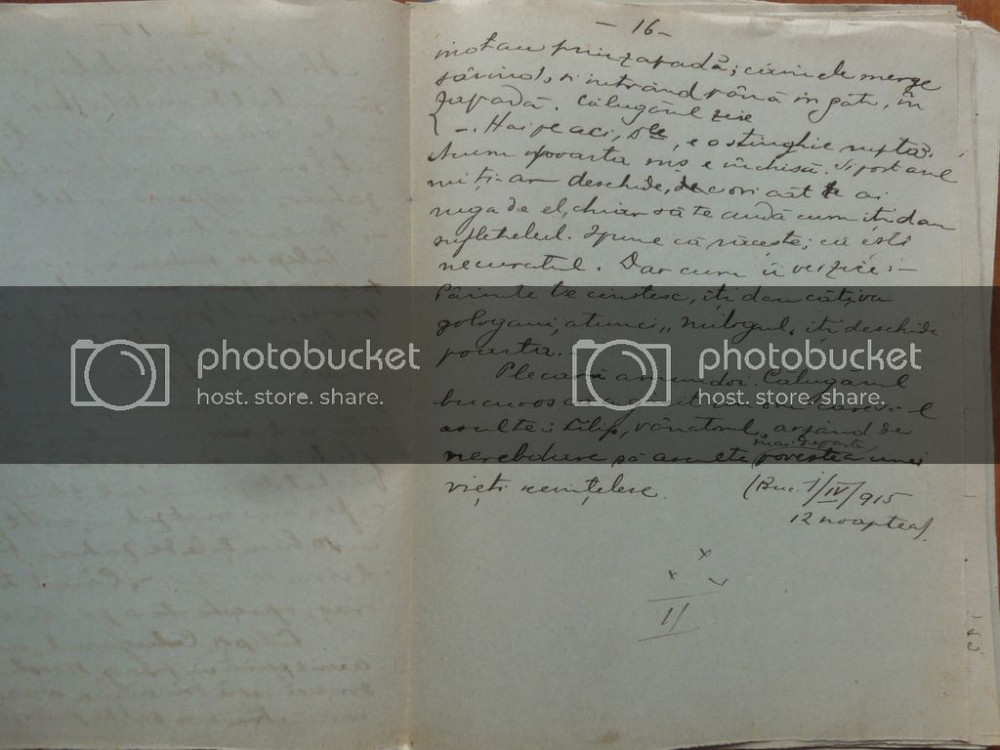 - 16 -
înotau prin zăpadă; câinele merge
sărind, și intrând până în gât, în
zăpadă. Călugărul zise
-. Hai pe aci, Dle, e o stinghie ruptă.
Acum poarta ms e închisă. Și portarul
nu ți-ar deschide, de cori cât te ai
ruga de el, chiar să te audă cum îți dau
sufletelul. Spune că răcește; că ești
necuratul. Dar cum îi vei zice: -
Părinte te cinstesc, îți dau câțiva
gologani, atunci, îți deschide
poarta. -
Plecară amândoi. Călugărul
bucuros că a
asculte: Filip, vânătorul, arzând de
mai repede
nerăbdare să asculte povestea unei
vieți neînțelese.
(Buc. 1/IV/915
12 noaptea)
x
x
II
photobucket
host. store. share.
photobucket
host. store. share.